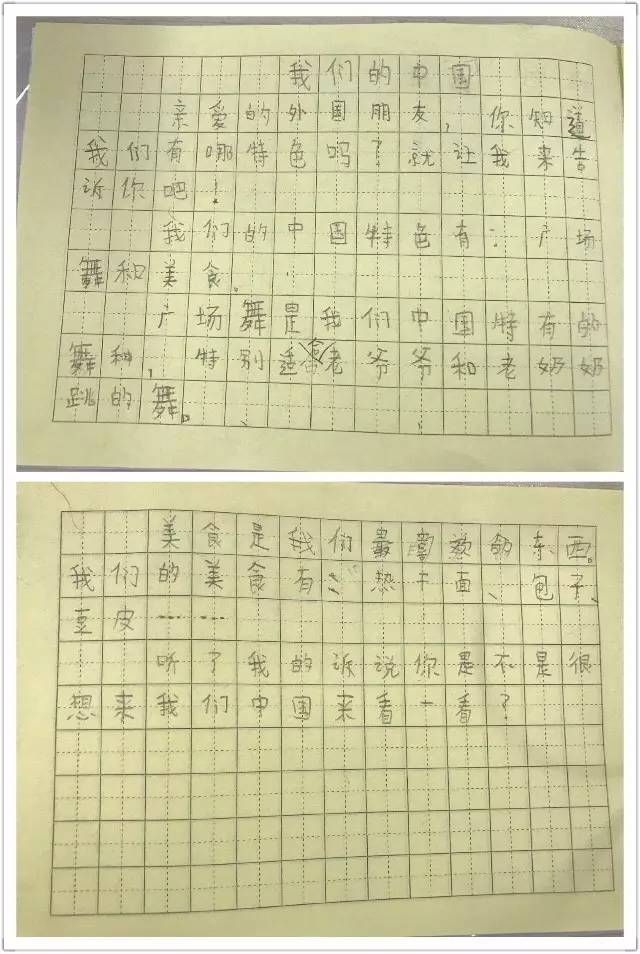 我们的中国
亲爱的外国朋友,你知道
我们有哪特色吗?就让我来告
诉你吧!
我们的中国特色有:广场
舞和美食。
广场舞是我们中国特有的
舞种,特别适合老爷爷和老奶奶
跳的舞。
美食是我们最喜欢的东西。
我们的美食有:热干面、包子、
豆皮……
听了我的诉说你是不是很
想来我们中国来看一看?